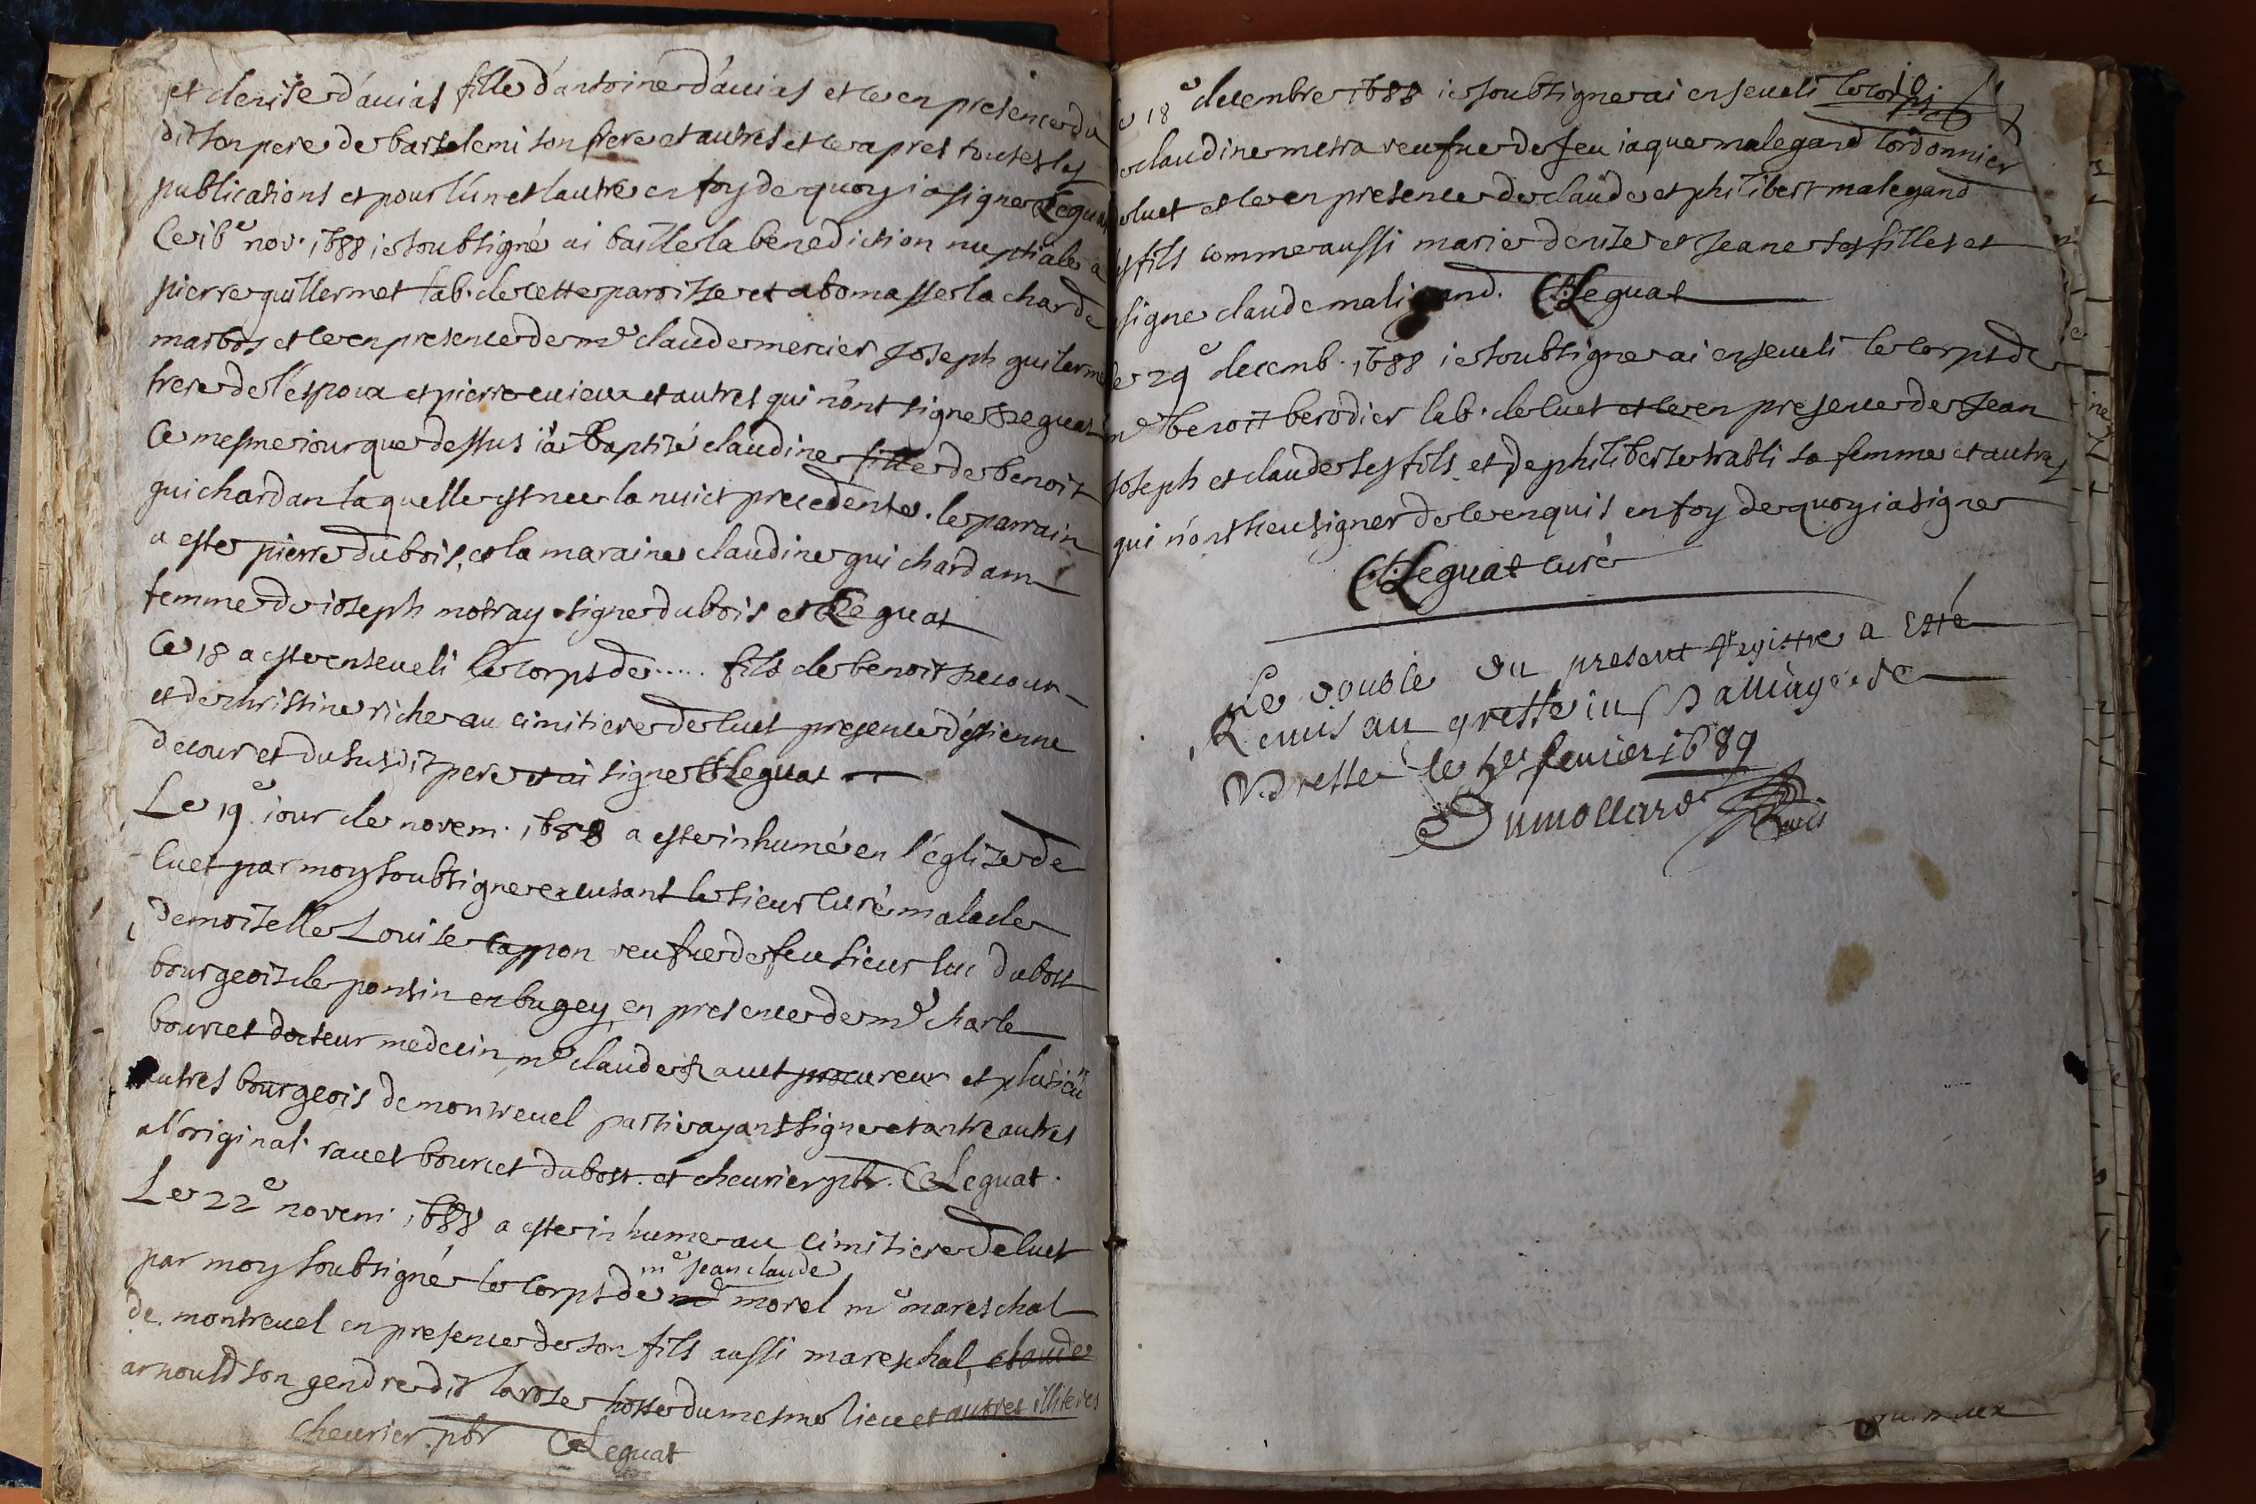 et denise d'auias fille d'antoine d'auias et ce en presence du
dit son pere de bartelemi son frere et autres et ce apres toutes les
publications et pour l'un et lautre en foy de quoy i'a signe C Leguat
Ce 16e nov. 1688 ie soubsigné ai baille la benediction nuptiale a
pierre guillermet lab. de cette paroisse et a bomasse la chard de
marbos et ce en presence de me claude mercier Joseph guilerme
frere de l'espoux et pierre cuieux et autres qui n'ont signe C Leguat
Ce mesme iour que dessus i'ai baptisé claudine fille de benoit
guichardan laquelle est nee la nuict precedente. le parrain
a este pierre dubois, et la maraine claudine guichardam
femme de ioseph notray signe dubois et C Leguat
Ce 18 a este enseueli le corps de ..... fils de benoit decour
et de christine riche au cimitiere de luet presence d'estienne
decour et du susdit pere et ai signe C Leguat
Le 19e iour de novem. 1688 a este inhumé en l'eglise de
luet par moy soubsigne excusant le sieur curé malade
demoiselle Louise cappon veufue de feu sieur luc dubost
bourgeois de ponsin en bugey en presence de me charle
bourcet docteur medecin, me claude rauet procureur et plusieurs
autres bourgeois de montreuel partie ayant signe et antre autres
a l'original. rauet bourcet dubost. et cheurier pbr. C Leguat.
Le 22e novem. 1688 a este inhume au cimitiere de luet
me Jean claude
par moy soubsigné le corps de morel me mareschal
de montreuel en presence de son fils aussi mareschal, claude
arnould son gendre dit larose hoste du mesme lieu et autres illiteres
cheurier. pbr C Leguat
10
Le 18e decembre 1688 ie soubsigne ai enseueli le corps
de claudine metra veufue de feu iaque malegand cordonnier
de luet et ce en presence de claude et philibert malegand
ses fils comme aussi marie denise et Jeane ses filles et
signe claude maligand. C Leguat
Le 29e decemb. 1688 ie soubsigne ai enseueli le corps de
me benoit berodier lab. de luet et ce en presence de Jean
Joseph et claude ses fils et de philiberte trabli sa femme et autres
qui n'ont sceu signer de ce enquis en foy de quoy i'a signe
C Leguat curé
Le double du present registre a esté
Remis au greffe du Balliage de
Bresse le 7e feurier 1689
Dumollard